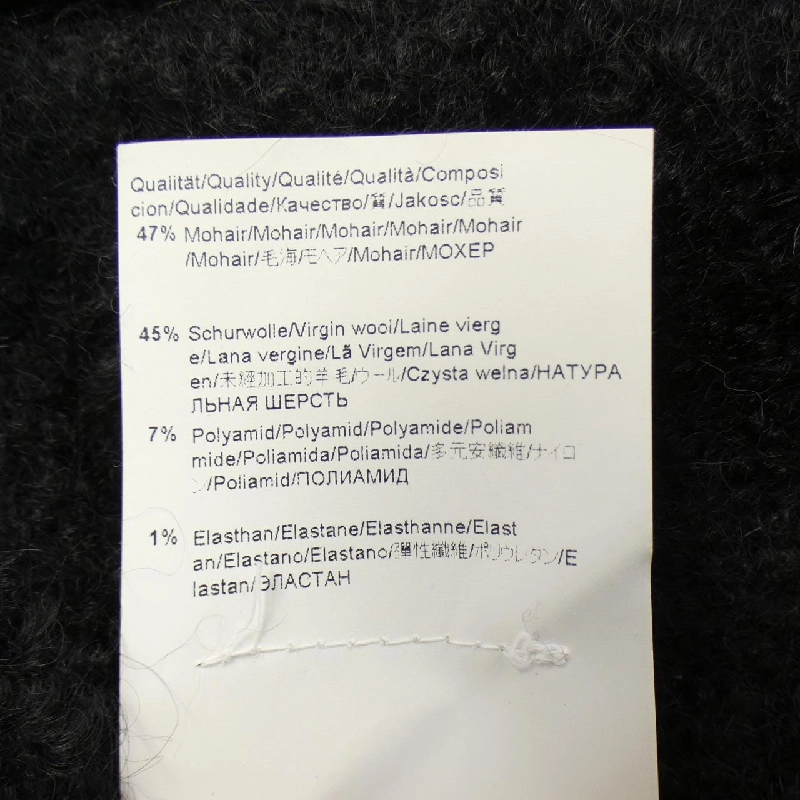 Qualität/Quality/Qualité/Qualità/Composi
cion/Qualidade/Качество/質/Jakosc/品質
47% Mohair/Mohair/Mohair/Mohair/Mohair
/Mohair/毛海/モヘア/Mohair/МОХЕР
45% Schurwolle/Virgin wool/Laine vierg
e/Lana vergine/Lã Virgem/Lana Virg
en/未經加工的羊毛/ウール/Czysta welna/НАТУРА
ЛЬНАЯ ШЕРСТЬ
7% Polyamid/Polyamid/Polyamide/Poliam
mide/Poliamida/Poliamida/多元安纖維/ナイロ
ン/Poliamid/ПОЛИАМИД
1% Elasthan/Elastane/Elasthanne/Elast
an/Elastano/Elastano/彈性纖維/ポリウレタン/E
lastan/ЭЛАСТАН